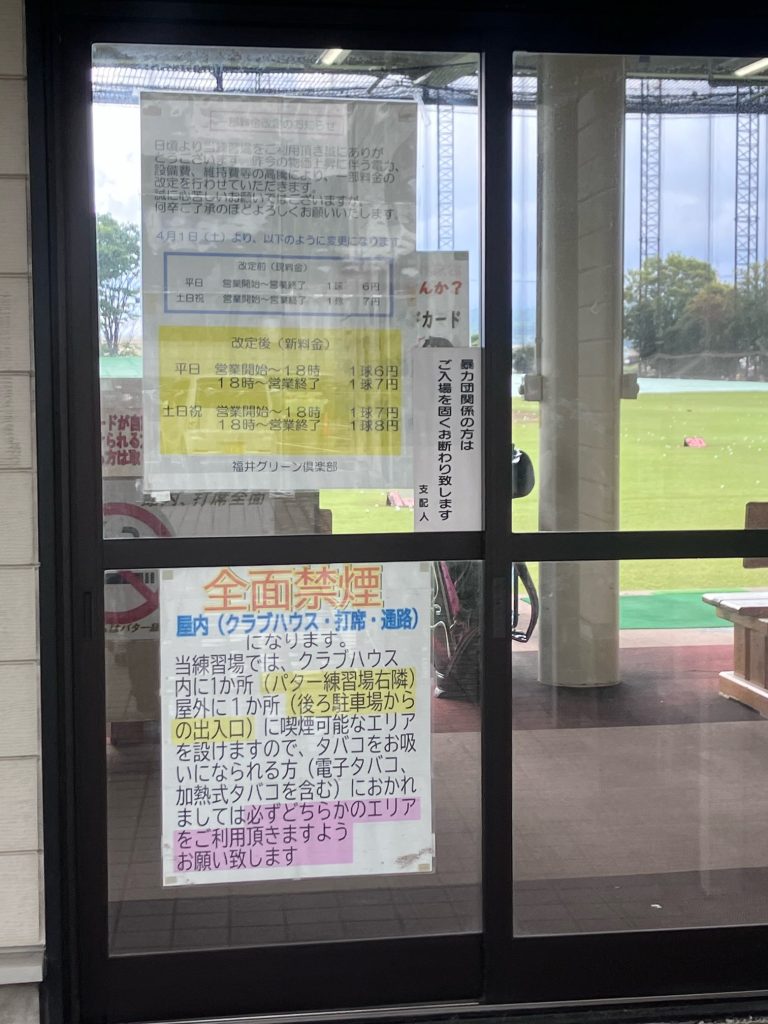 一部料金改定のお知らせ
日頃より当練習場をご利用頂き誠にありが
とうございます。昨今の物価上昇に伴う電力、
設備費、維持費等の高騰により、一部料金の
改定を行わせていただきます。
誠に心苦しいお願いではございますが、
何卒ご了承のほどよろしくお願いいたします。
4月1日(土)より、以下のように変更になります。
改定前(現料金)
平日 営業開始〜営業終了 1球 6円
土日祝 営業開始〜営業終了 1球 7円
改定後(新料金)
平日 営業開始〜18時 1球6円
18時〜営業終了 1球7円
土日祝 営業開始〜18時 1球7円
18時〜営業終了 1球8円
福井グリーン倶楽部
んか?
ドカード
暴力団関係の方は
ご入場を固くお断わり致します
支配人
ードが自
られる
方は取
館内、打席全面
はパター
全面禁煙
屋内(クラブハウス・打席・通路)
になります。
当練習場では、クラブハウス
内に1か所(パター練習場右隣)
屋外に1か所(後ろ駐車場から
の出入口)に喫煙可能なエリア
を設けますので、タバコをお吸
いになられる方(電子タバコ、
加熱式タバコを含む)におかれ
ましては必ずどちらかのエリア
をご利用頂きますよう
お願い致します